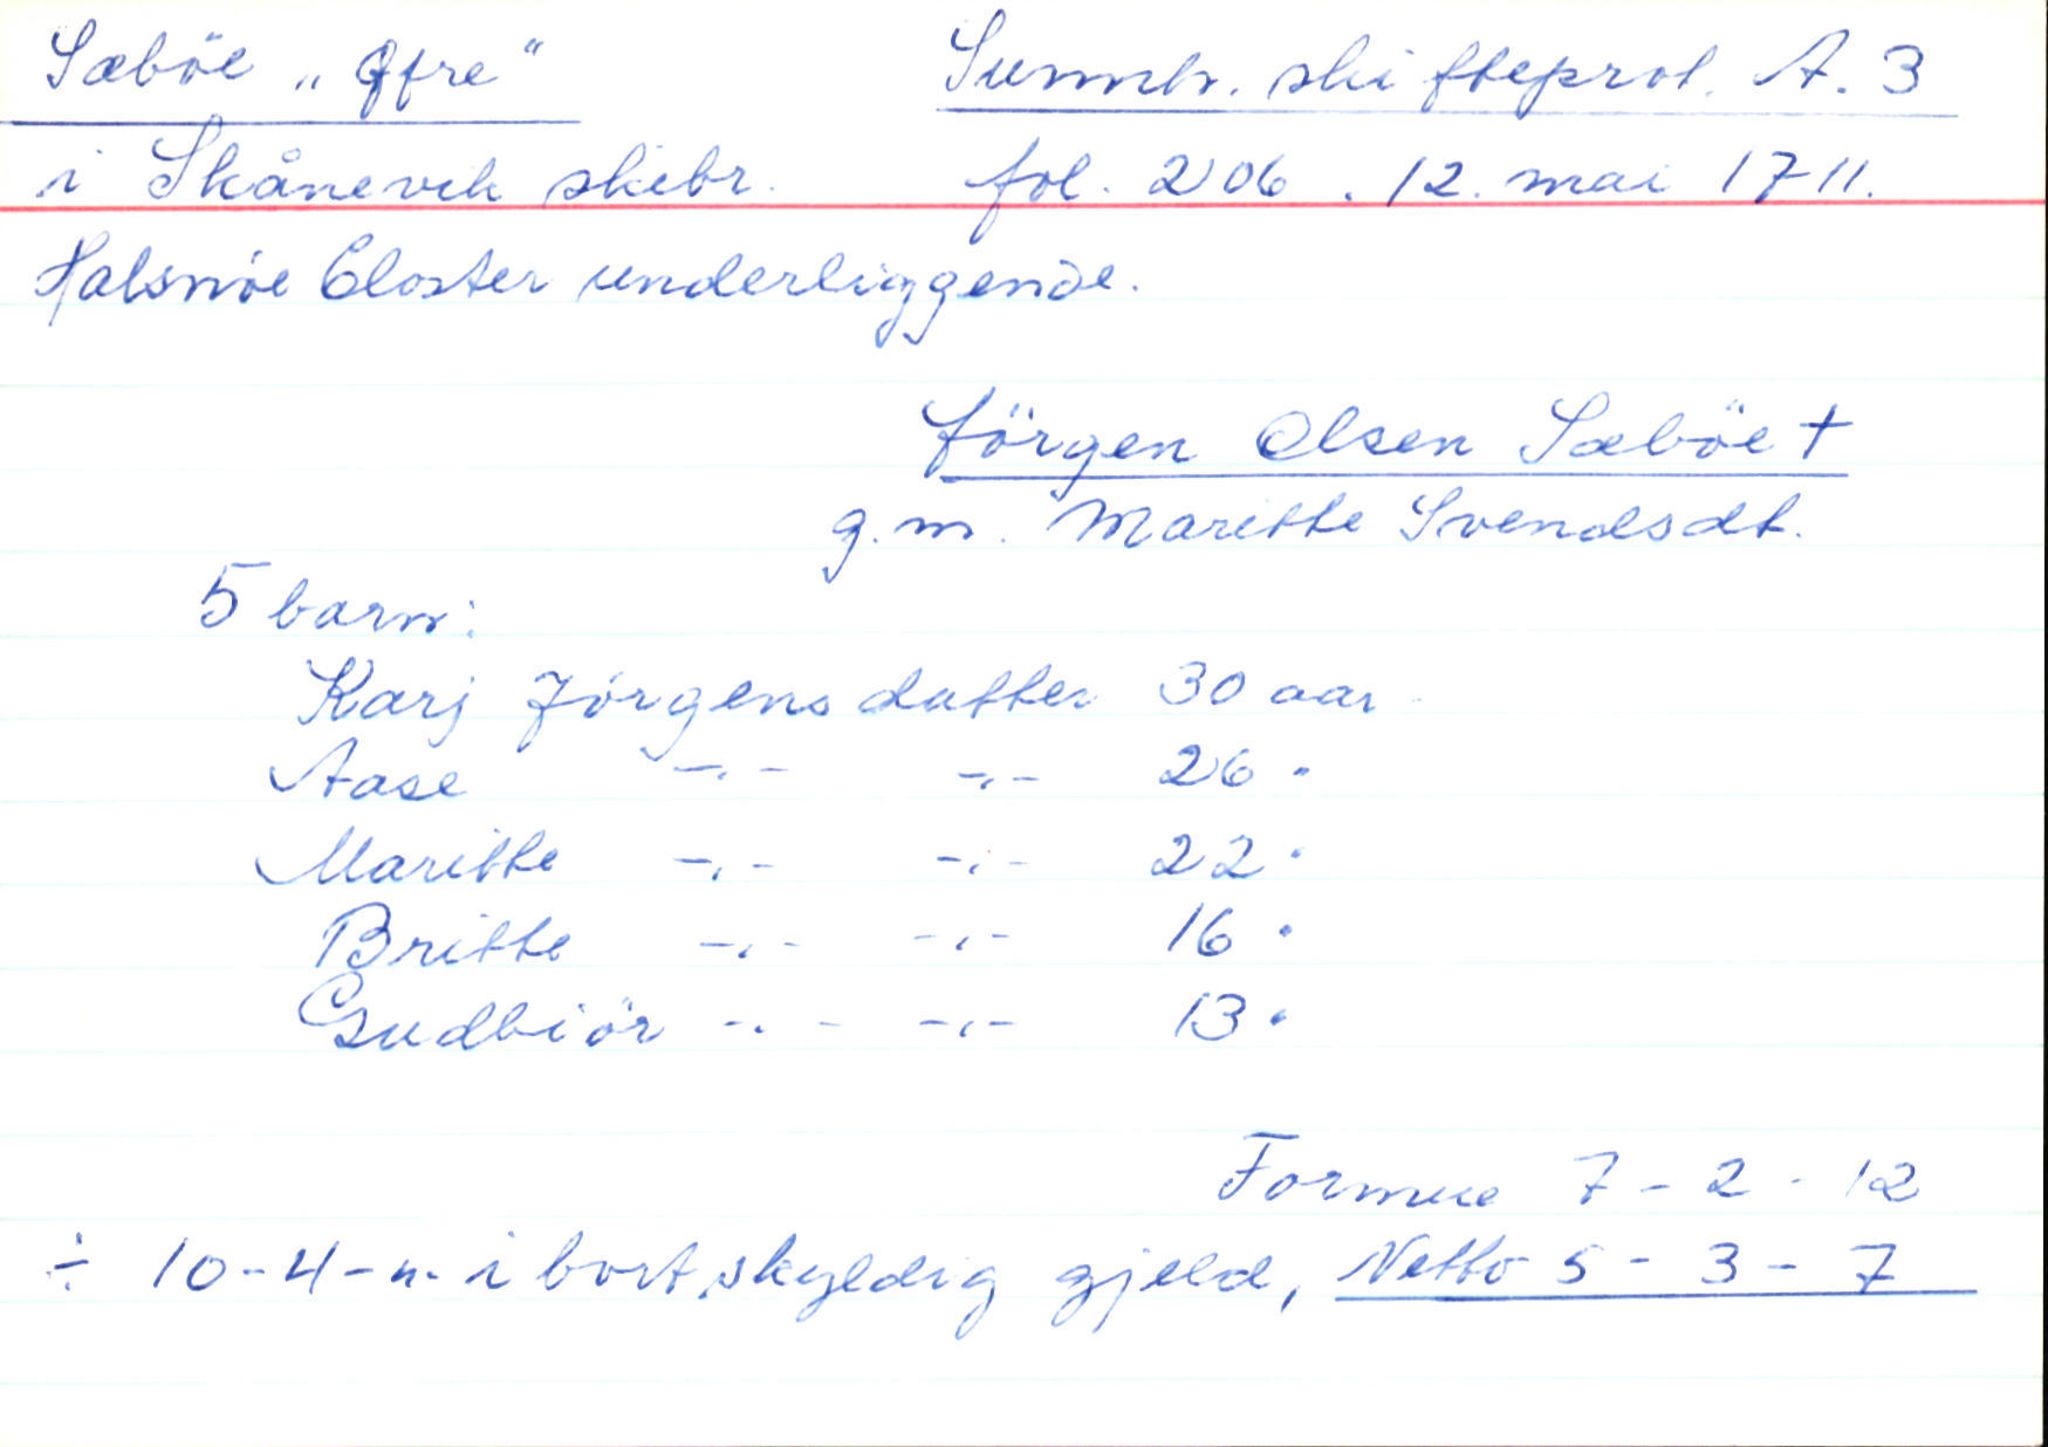 Sæböe „Øfre"
Sunnh. skifteprot. A. 3
i Skånevik skibr.
fol. 206. 12. mai 1711.
Halsnöe Closter underliggende.
Jörgen Olsen Sæböe †
g. m. Maritte Svendsdt.
5 barn:
Karj Jörgensdatter 30 aar
Aase -"- -"- 26 "
Maritte -"- -"- 22 "
Britte -"- -"- 16 "
Gudbiör -"- -"- 13 "
Formue 7 - 2 - 12
÷ 10-4-"- i bortskyldig gjeld, Netto 5 - 3 - 7